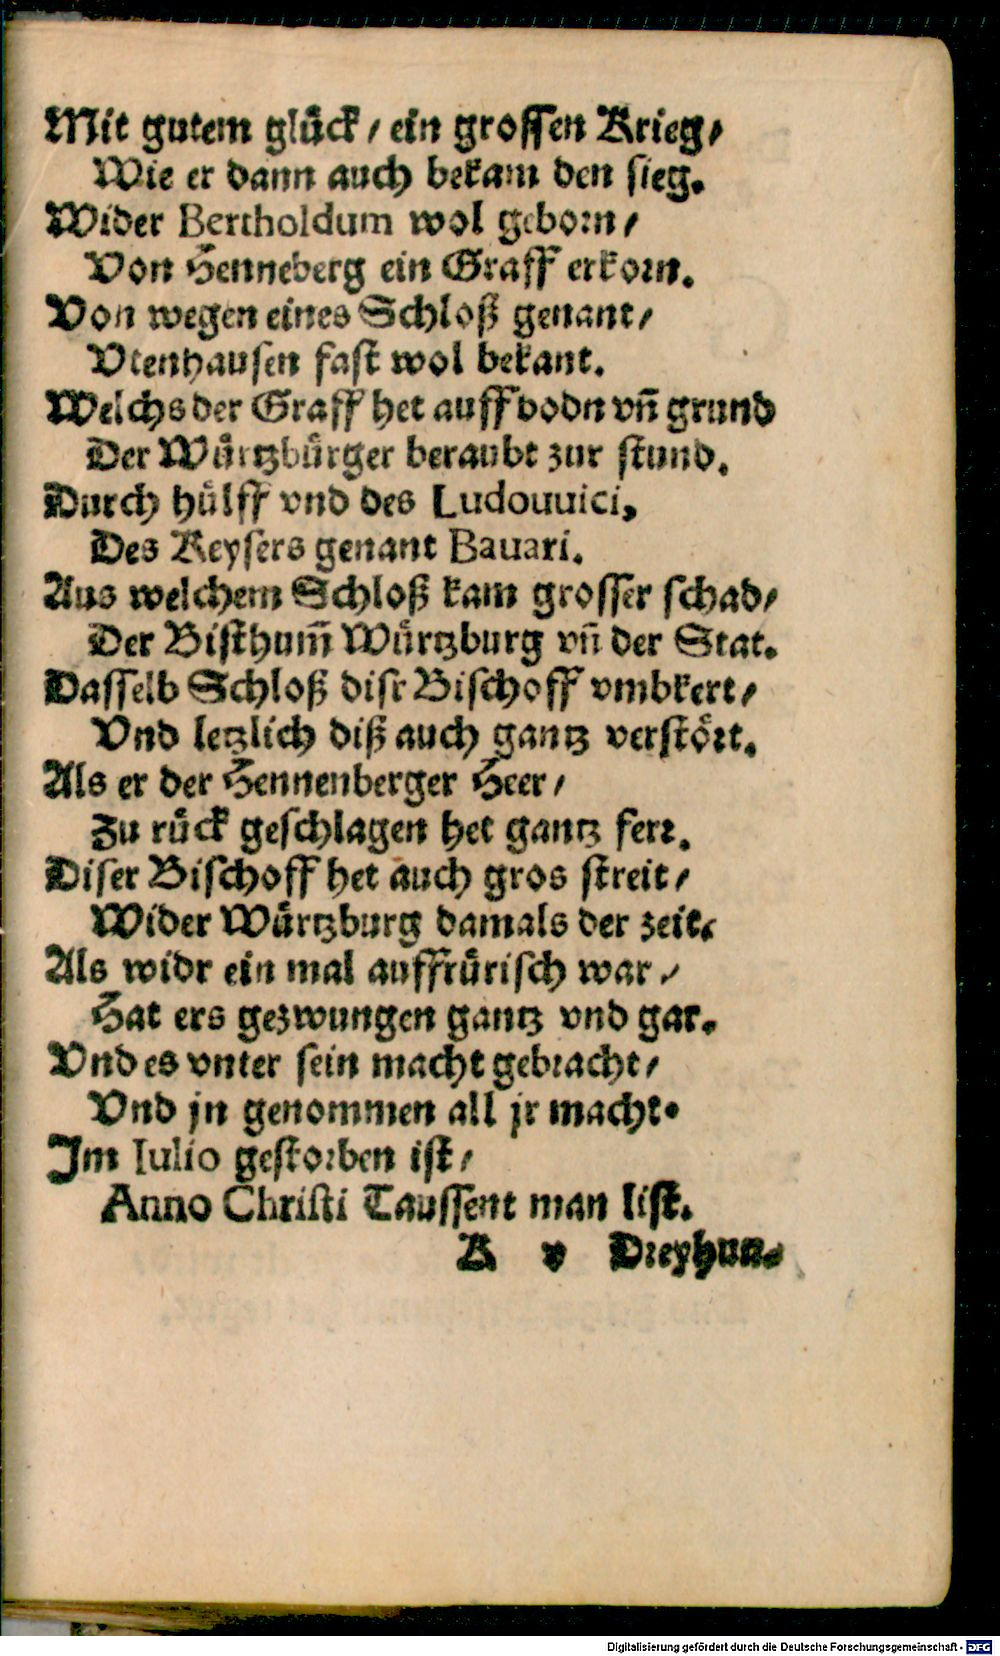 Mit gutem glück / ein groſſen Krieg /
Wie er dann auch bekam den ſieg.
Wider Bertholdum wol geborn /
Von Henneberg ein Graff erkorn.
Von wegen eines Schloß genant /
Vtenhauſen faſt wol bekant.
Welchs der Graff het auff bodn vñ grund
Der Würtzbürger beraubt zur ſtund.
Durch hülff vnd des Ludouuici,
Des Keyſers genant Bauari.
Aus welchem Schloß kam groſſer ſchad /
Der Biſthum̃ Würtzburg vñ der Stat.
Daſſelb Schloß diſr Biſchoff vmbkert /
Vnd letzlich diß auch gantz verſtört.
Als er der Hennenberger Heer /
Zu rück geſchlagen het gantz ferr.
Diſer Biſchoff het auch gros ſtreit /
Wider Würtzburg damals der zeit.
Als widr ein mal auffrüriſch war /
Hat ers gezwungen gantz vnd gar.
Vnd es vnter ſein macht gebracht /
Vnd jn genommen all jr macht.
Im Iulio geſtorben iſt /
Anno Chriſti Tauſſent man liſt.
K v Dreyhun⸗
Digitalisierung gefördert durch die Deutsche Forschungsgemeinschaft - DFG